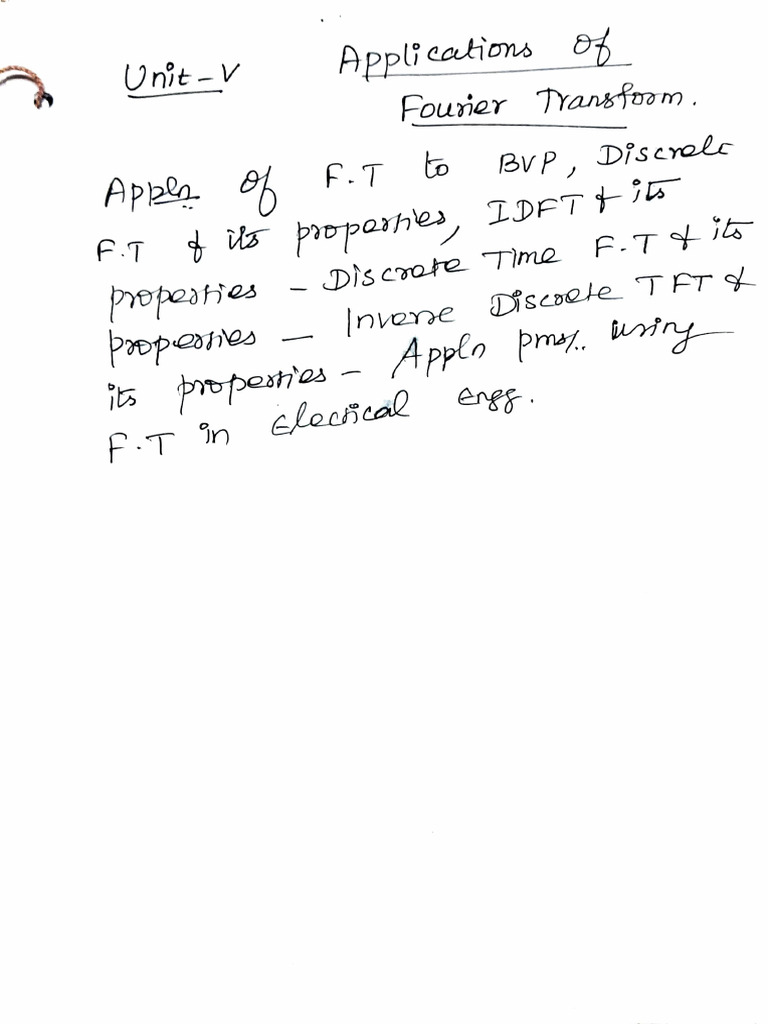 Unit-V Applications of
Fourier Transform.
Appln of F.T to BVP, Discrete
F.T & its properties, IDFT & its
properties - Discrete Time F.T & its
properties - Inverse Discrete TFT &
its properties - Appln pms/.. using
F.T in Electrical engg.